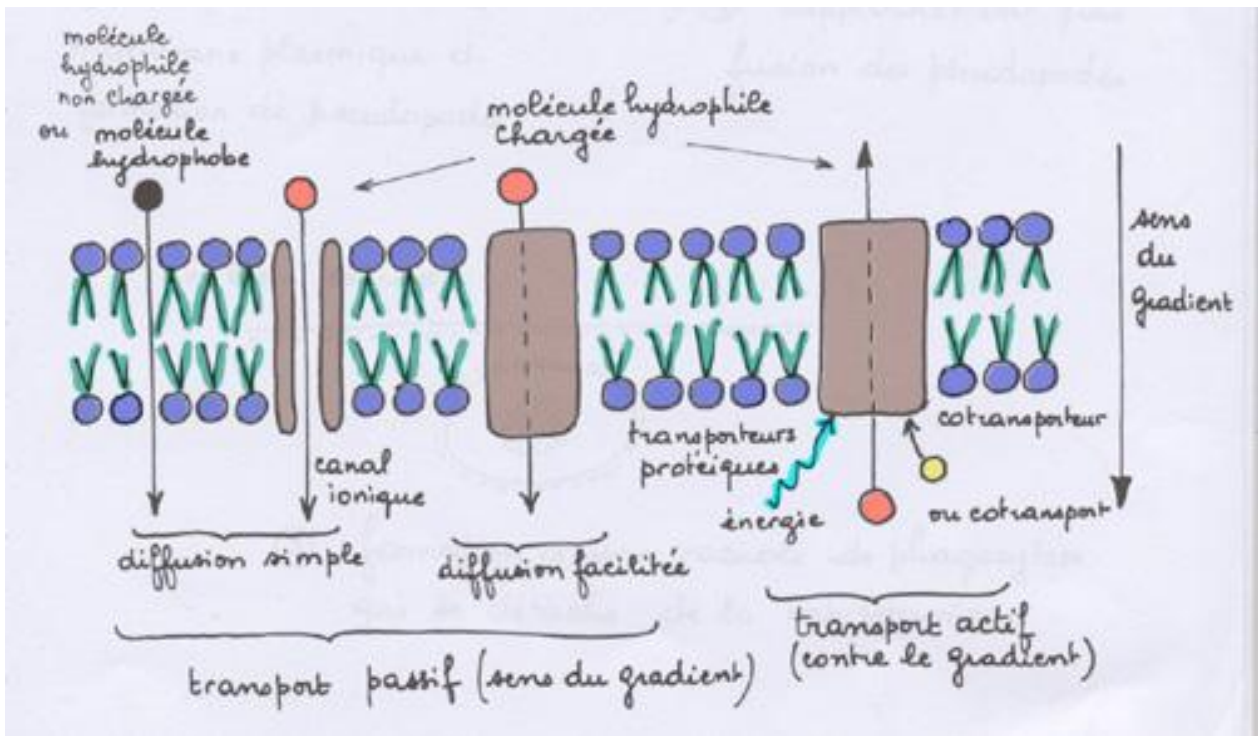 molécule
hydrophile
non chargée
ou molécule
hydrophobe
molécule hydrophile
chargée
sens
du
gradient
canal
ionique
transporteurs
protéiques
énergie
cotransporteur
ou cotransport
diffusion simple
diffusion facilitée
transport passif (sens du gradient)
transport actif
(contre le gradient)